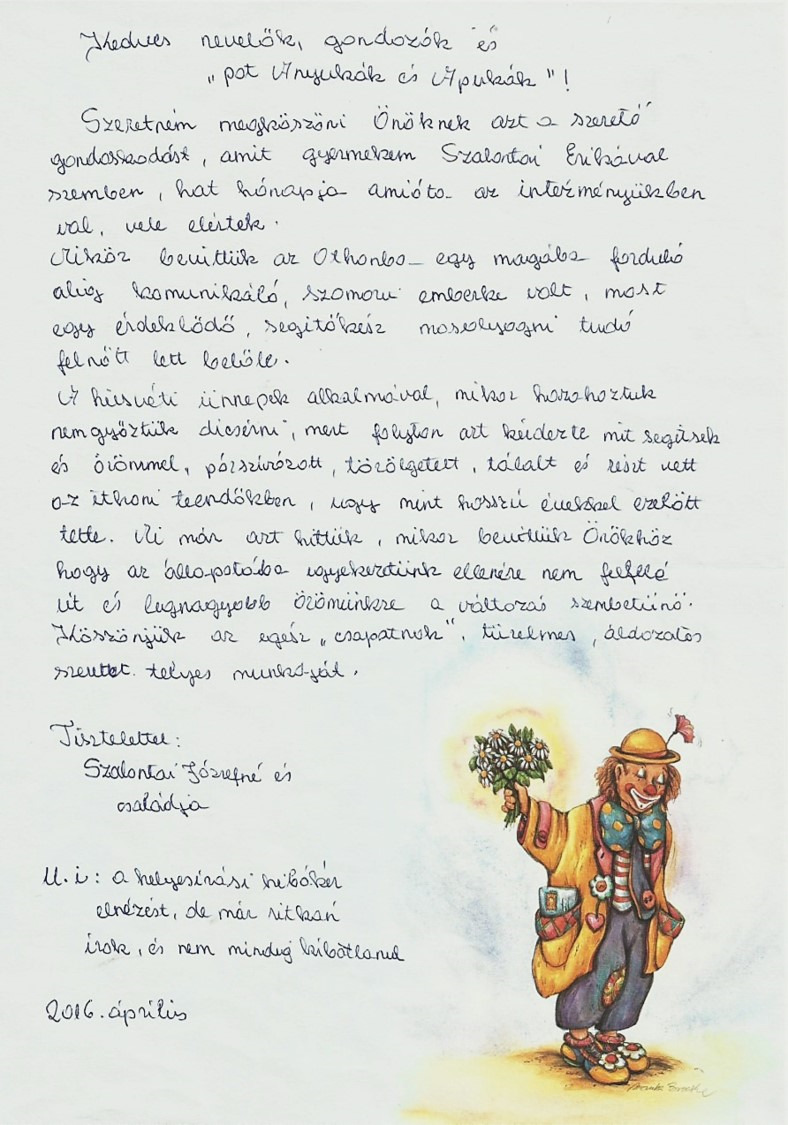 Kedves nevelők, gondozók és
"pót Anyukák és Apukák"!
Szeretném megköszöni Önöknek azt a szerető
gondoskodást, amit gyermekem Szalontai Erikával
szemben, hat hónapja amióta az intézményükben
val, vele elértek.
Mikor bevittük az Othonba egy magába forduló
alig komunikáló, szomorú emberke volt, most
egy érdeklödő, segitőkész mosolyogni tudó
felnőtt lett belőle.
A húsvéti ünnepek alkalmával, mikor hazahoztuk
nem győztük dicsérni, mert folyton azt kérdezte mit segitsek
és örömmel, pórszivózott, törölgetett, tálalt és részt vett
az ithoni teendőkben, ugy mint hosszú évekkel ezelött
tette. Mi már azt hittük, mikor bevittük Önökhöz
hogy az állapotába igyekezetünk ellenére nem felfelé
út és legnagyobb örömünkre a változás szembetünő.
Köszönjük az egész "csapatnak", türelmes, áldozatos
szeretet telyes munkáját.
Tisztelettel:
Szalontai Józsefné és
családja
U.i: a helyesirási hibákér
elnézést, de már ritkán
irok, és nem mindig
2016. április